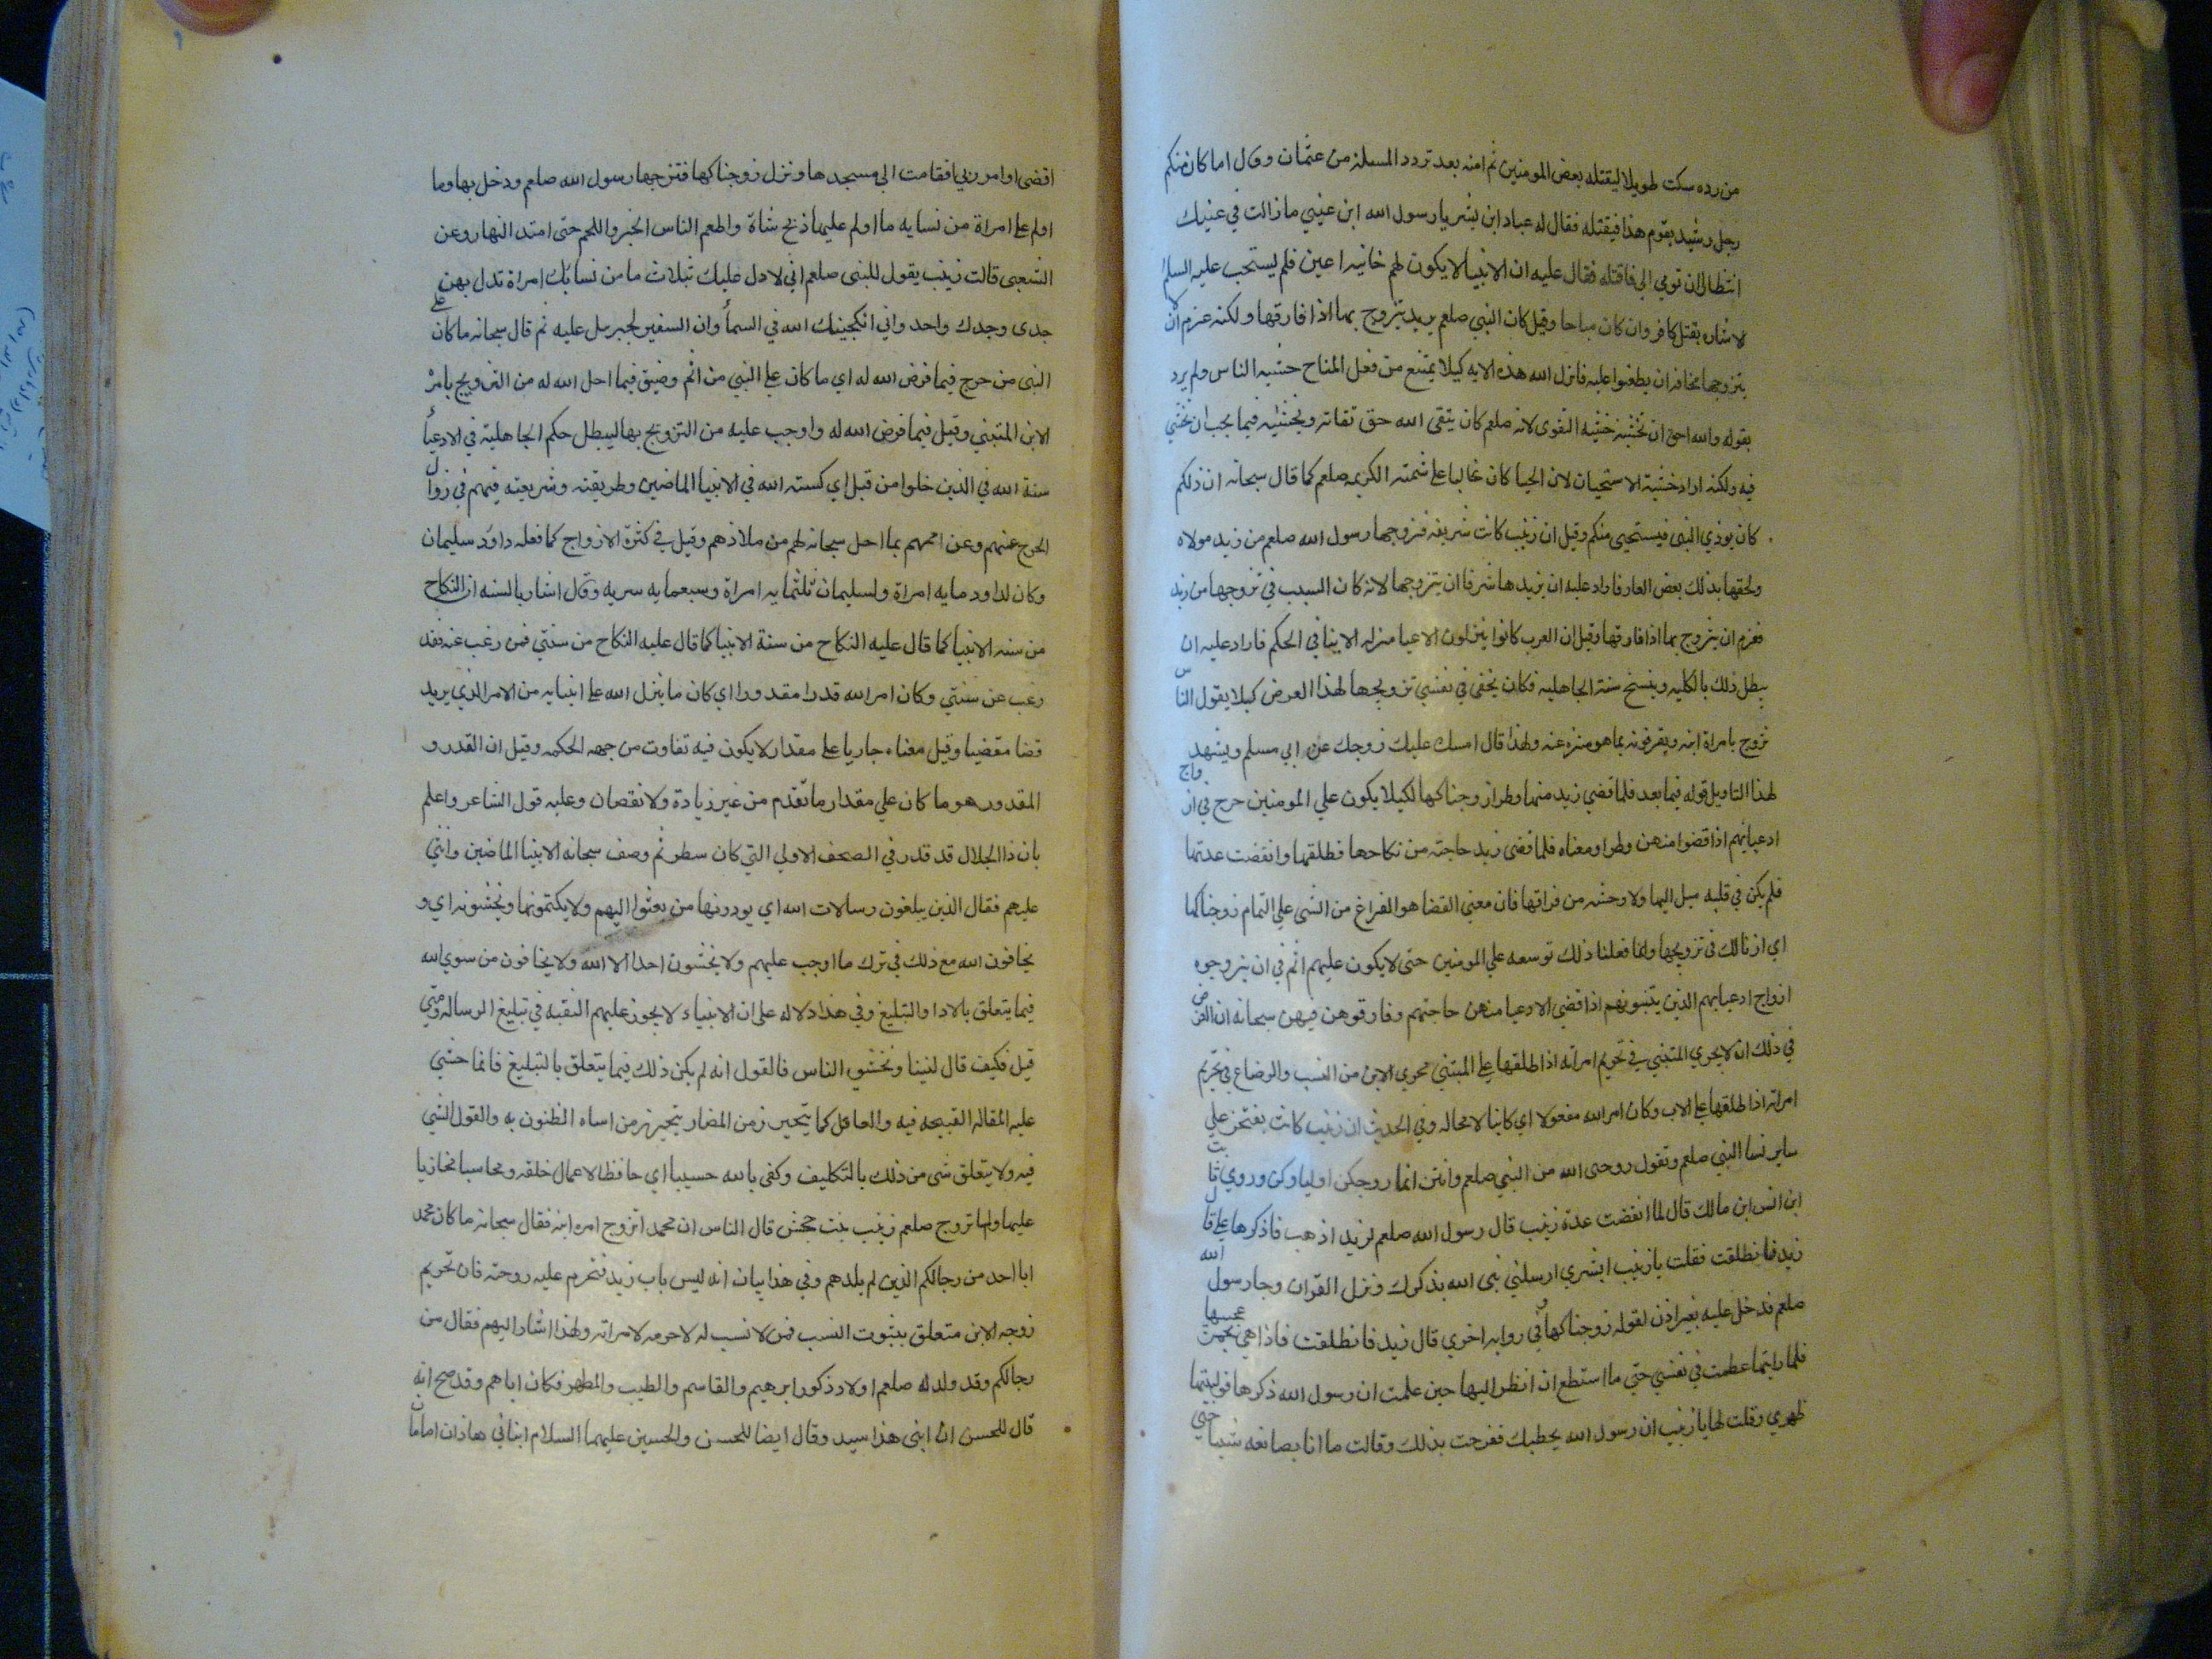 من رده سكت طويلا ليقتله بعض المومنين ثم امنه بعد تردد المسلة من عثمان وقال اما كان منكم
رجل رشيد يقوم هذا فيقتله فقال له عباد ابن بشر يا رسول الله ان عيني ما زالت في عينيك
انتظارا ان تومي الي فاقتله فقال عليه ان الانبيا لا يكون لهم خاينة اعين فلم يستحب عليه السلم
لاشاره بقتل كافر وان كان مباحا وقيل كان النبي صلعم يريد يتزوج بها اذا فارقها ولكنه عزم ان لا
يتزوجها مخافة ان يطعنوا عليه فانزل الله هذه الايه كيلا يمتنع من فعل المباح خشيه الناس ولم يرد
بقوله والله احق ان تخشيه خشيه التقوى لانه صلعم كان يتقى الله حق تقاته ويخشيه فيما يجب ان يخشي
فيه ولكنه اراد خشية الاستحيات لان الحيا كان غالبا على شمته الكريمه صلعم كما قال سبحانه ان ذلكم
كان يوذي النبي فيستحيي منكم وقيل ان زينب كانت شريفه فزوجها رسول الله صلعم من زيد مولاه
ولحقها بذلك بعض العار فاراد عليه ان يزيدها شرفا ان يتزوجها لانه كان السبب في تزوجها من زيد
فعزم ان يتزوج بها اذا فارقها وقيل ان العرب كانوا ينزلون الادعيا منزله الابنا في الحكم فاراد عليه ان
يبطل ذلك بالكليه وينسخ سنة الجاهليه فكان يخفي في نفسه تزويجها لهذا الغرض كيلا يقول الناس
تزوج بامراة ابنه ويقرفونه بما هو منزه عنه ولهذا قال امسك عليك زوجك عن ابي مسلم ويشهد
لهذا التاويل قوله فيما بعد فلما قضي زيد منها وطرا زوجناكها لكيلا يكون علي المومنين حرج في ازواج
ادعيائهم اذا قضوا منهن وطرا ومعناه فلما قضى زيد حاجته من نكاحها فطلقها وانقضت عدتها
فلم يكن في قلبه ميل اليها ولا وحشه من فراقها فان معني القضا هو الفراغ من الشي علي التمام زوجناكها
اي اذنا لك في تزويجها وانما فعلنا ذلك توسعه علي المومنين حتى لا يكون عليهم اثم في ان يتزوجوه
ازواج ادعيايهم الذين يتبنونهم اذا قضي الادعيا منهن حاجتهم وفارقوهن فبين سبحانه ان الغرض
في ذلك ان لا يجري المتبني في تحريم امراته اذا طلقها على المتبني مجري الابن من النسب والرضاع في تحريم
امراته اذا طلقها على الاب وكان امر الله مفعولا اي كاينا لا محاله وفي الحديث ان زينب كانت تفتخر علي
ساير نسا النبي صلعم وتقول زوجنى الله من النبي صلعم وانتن انما زوجكن اولياوكن وروي ثابت
ابن انس ابن مالك قال لما انقضت عدة زينب قال رسول الله صلعم لزيد اذهب فاذكرها علي قال
زيد فانطلقت فقلت يا زينب ابشري ارسلني نبي الله بذكرك ونزل القران وجا رسول الله
صلعم فدخل عليه بغير اذن لقوله زوجناكها وفي روايه اخري قال زيد فانطلقت فاذا هي تخمر عجينها
فلما رايتها عظمت في نفسي حتي ما استطع ان انظر اليها حين علمت ان رسول الله ذكرها فوليتها
ظهري وقلت لها يا زينب ان رسول الله يخطبك ففرحت بذلك وقالت ما انا بصانعه شيا حتي
اقضى اوامر ربي فقامت الي مسجدها ونزل زوجناكها فتزوجها رسول الله صلعم ودخل بها وما
اولم على امراة من نسايه ما اولم عليها ذبح شاة واطعم الناس الخبز واللحم حتى امتد النهار وعن
الشعبى قالت زينب يقول للنبى صلعم اني لادل عليك بثلاث ما من نسائك امراة تدل بهن
جدى وجدك واحد واني انكحنيك الله في السمأ وان السفير لجبريل عليه ثم قال سبحانه ما كان على
النبى من حرج فيما فرض الله له اي ما كان على النبي من اثم وضيق فيما احل الله له من التزويج بامرْ
الابن المتبني وقيل فيما فرض الله له واوجب عليه من التزويج بها ليبطل حكم الجاهلية في الادعيأ
سنة الله في الذين خلوا من قبل اي كسنته الله في الانبيا الماضين وطريقته وشريعته فيهم في زوال
الحرج عنهم وعن اممهم بما احل سبحانه لهم من ملاذهم وقيل في كثرة الازواج كما فعله داود سليمان
وكان لداود مايه امراة ولسليمان ثلثمايه امراة وسبعمايه سريه وقال اشار بالسنه ان النكاح
من سنه الانبيا كما قال عليه النكاح من سنة الانبيا كما قال عليه النكاح من سنتي فمن رغب عنه فقد
رغب عن سنتي وكان امر الله قدرا مقدورا اي كان ما ينزل الله على انبيايه من الامر الذي يريد
قضا مقضيا وقيل معناه جاريا على مقدار لا يكون فيه تفاوت من جهه الحكمه وقيل ان القدر و
المقدور هو ما كان علي مقدار ما تقدم من غير زيادة ولا نقصان وعليه قول الشاعر واعلم
بان ذا الجلال قد قدر في الصحف الاولي التي كان سطر ثم وصف سبحانه الانبيا الماضين واثني
عليهم فقال الذين يبلغون رسالات الله اي يودونها من بعثوا اليهم ولا يكتمونها ويخشونه اي و
يخافون الله مع ذلك في ترك ما اوجب عليهم ولا يخشون احدا الا الله ولا يخافون من سوي الله
فيما يتعلق بالادا والتبليغ وفي هذا دلاله على ان الانبياء لا يجوز عليهم التقيه في تبليغ الرساله ومتي
قيل فكيف قال لنبينا وتخشي الناس فالقول انه لم يكن ذلك فيما يتعلق بالتبليغ فانما خشي
عليه المقاله القبيحه فيه والعاقل كما يتحيرز من المضار يتحيرز من اساه الظنون به والقول الشي
فيه ولا يتعلق شى من ذلك بالتكليف وكفى بالله حسيبا اي حافظا لاعمال خلقه ومحاسبا مجازيا
عليها ولما تزوج صلعم زينب بنت جحش قال الناس ان محمد اتزوج امره ابنه فقال سبحانه ما كان محمد
ابا احد من رجالكم الذين لم يلدهم وفي هذا بيان انه ليس باب زيد فتحرم عليه زوجته فان تحريم
زوجه الابن متعلق بثبوت النسب فمن لا نسب له لا حرمه لامراته ولهذا اشار اليهم فقال من
رجالكم وقد ولد له صلعم اولاد ذكور ابرهيم والقاسم والطيب والمطهر فكان اباهم وقد صح انه
قال للحسن ان ابنى هذا سيد وقال ايضا للحسن والحسين عليهما السلام ابناني هاذان امامان